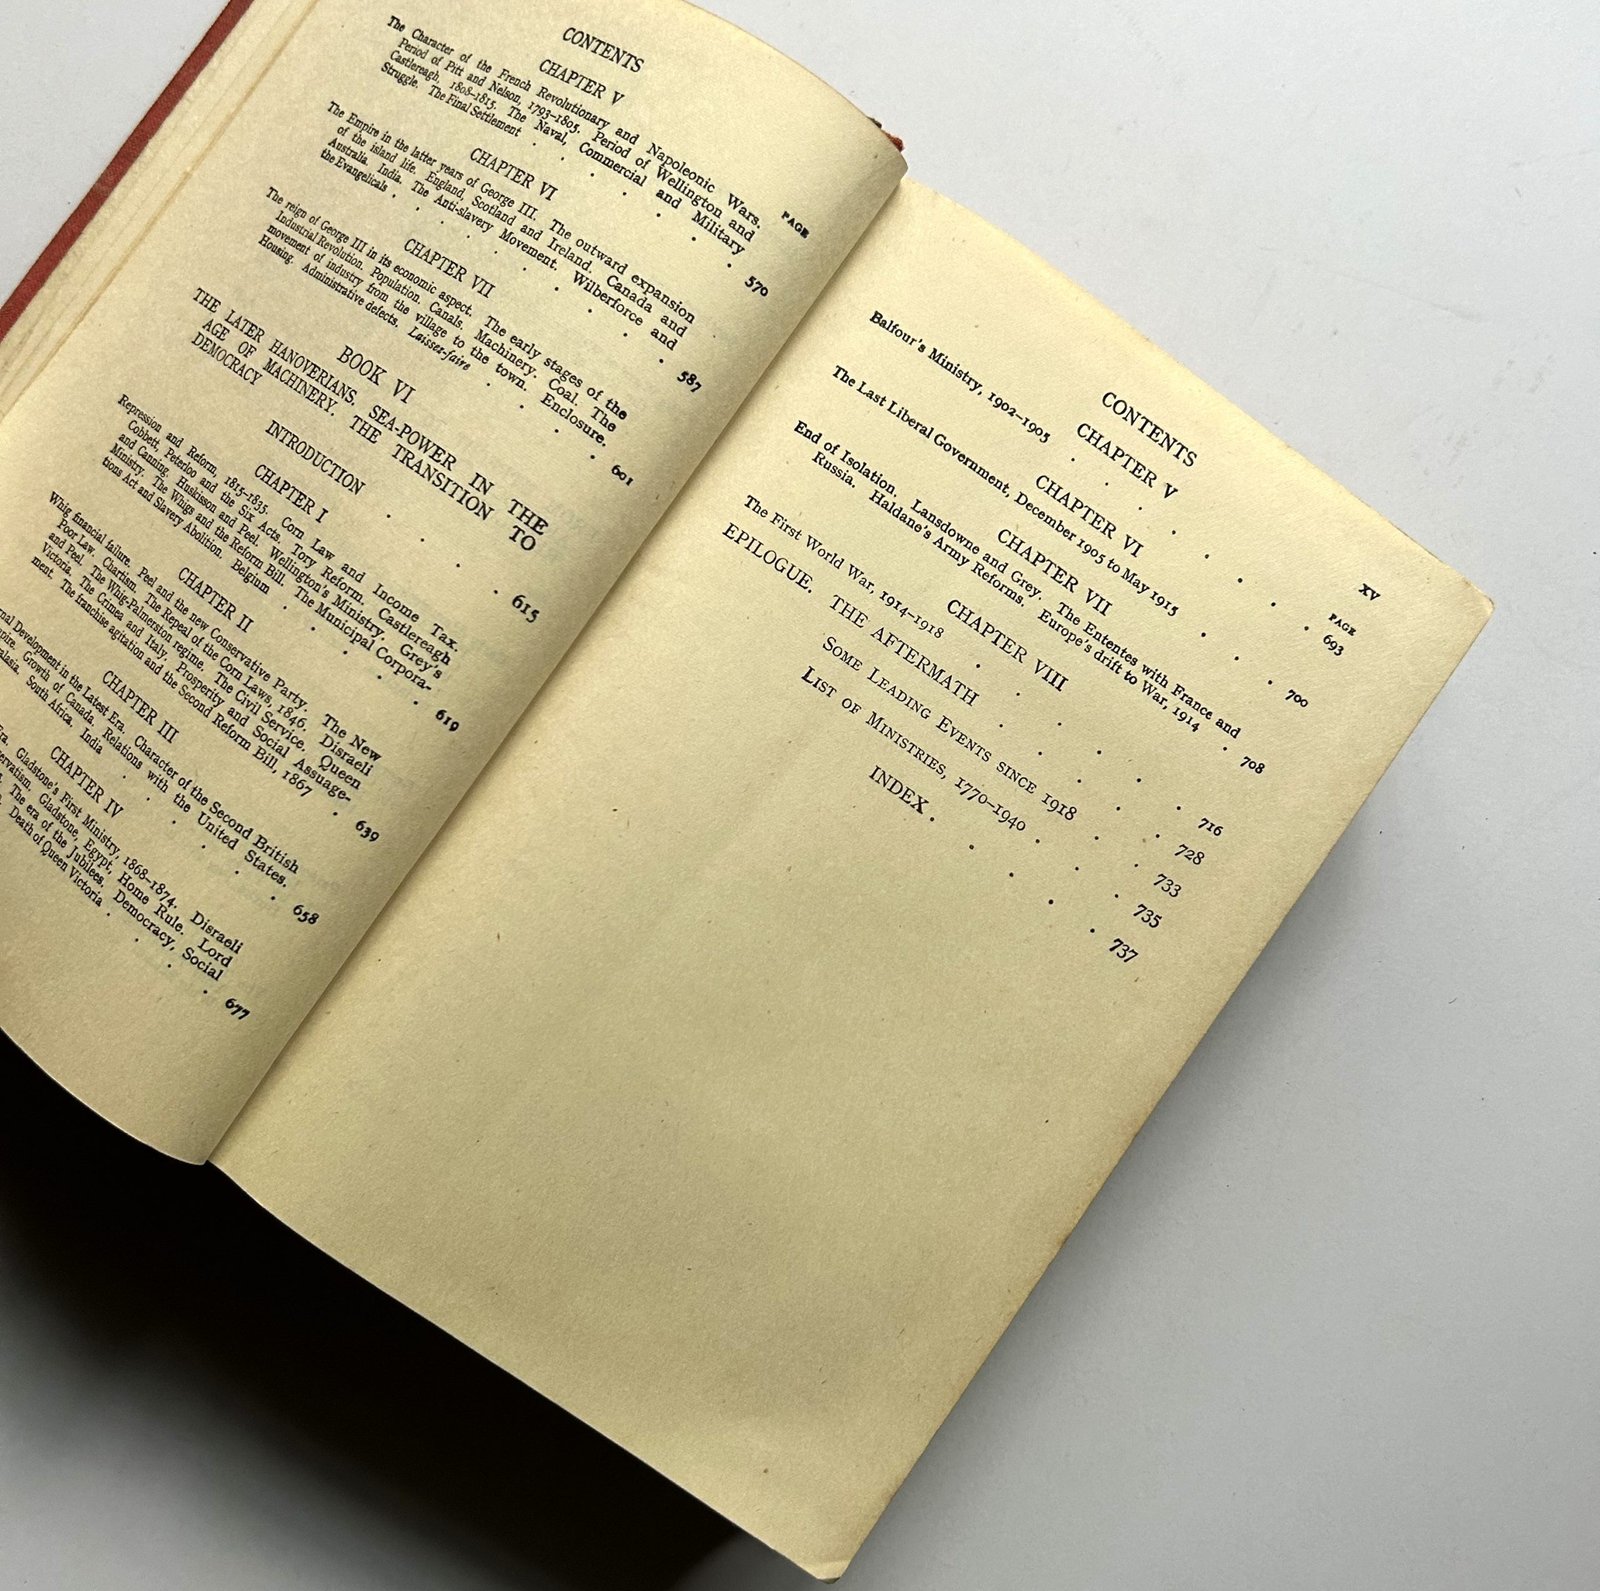 CONTENTS
CHAPTER V
PAGE
The Character of the French Revolutionary and Napoleonic Wars.
Period of Pitt and Nelson, 1793–1805. Period of Wellington and
Castlereagh, 1808–1815. The Naval, Commercial and Military
Struggle. The Final Settlement . . . . . . . 570
CHAPTER VI
The Empire in the latter years of George III. The outward expansion
of the island life. England, Scotland and Ireland. Canada and
Australia. India. The Anti-slavery Movement. Wilberforce and
the Evangelicals . . . . . . . . . 587
CHAPTER VII
The reign of George III in its economic aspect. The early stages of the
Industrial Revolution. Population. Canals. Machinery. Coal. The
movement of industry from the village to the town. Enclosure.
Housing. Administrative defects. Laisser-faire . . . . 601
BOOK VI
THE LATER HANOVERIANS. SEA-POWER IN THE
AGE OF MACHINERY. THE TRANSITION TO
DEMOCRACY
INTRODUCTION . . . . 615
CHAPTER I
Repression and Reform, 1815–1835. Corn Law and Income Tax.
Cobbett, Peterloo and the Six Acts. Tory Reform. Castlereagh
and Canning. Huskisson and Peel. Wellington's Ministry. Grey's
Ministry. The Whigs and the Reform Bill. The Municipal Corpora-
tions Act and Slavery Abolition. Belgium . . . . . 619
CHAPTER II
Whig financial failure. Peel and the new Conservative Party. The New
Poor Law. Chartism. The Repeal of the Corn Laws, 1846. Disraeli
and Peel. The Whig-Palmerston regime. The Civil Service. Queen
Victoria. The Crimea and Italy. Prosperity and Social Assuage-
ment. The franchise agitation and the Second Reform Bill, 1867 . 639
CHAPTER III
Development in the Latest Era. Character of the Second British
Growth of Canada. Relations with the United States.
South Africa. India . . . . . . 658
CHAPTER IV
Gladstone's First Ministry, 1868–1874. Disraeli
Gladstone, Egypt, Home Rule. Lord
The era of the Jubilees. Democracy, Social
Death of Queen Victoria . . . . 677
CONTENTS
XV
CHAPTER V
PAGE
Balfour's Ministry, 1902–1905 . . . . . . . 693
CHAPTER VI
The Last Liberal Government, December 1905 to May 1915 . . . 700
CHAPTER VII
End of Isolation. Lansdowne and Grey. The Ententes with France and
Russia. Haldane's Army Reforms. Europe's drift to War, 1914 . 708
CHAPTER VIII
The First World War, 1914–1918 . . . . . . 716
EPILOGUE. THE AFTERMATH . . . . . 728
Some Leading Events since 1918 . . . 733
List of Ministries, 1770–1940 . . . . 735
INDEX . . . . . 737